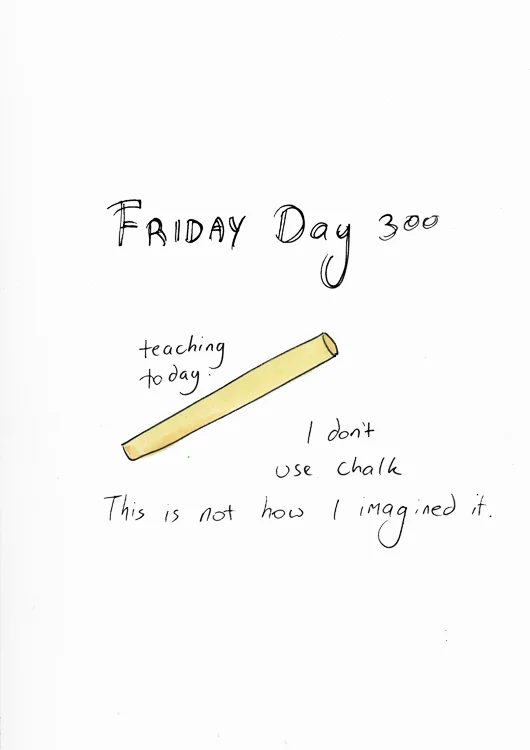 FRIDAY Day 300
teaching
today.
I don't
use chalk
This is not how I imagined it.